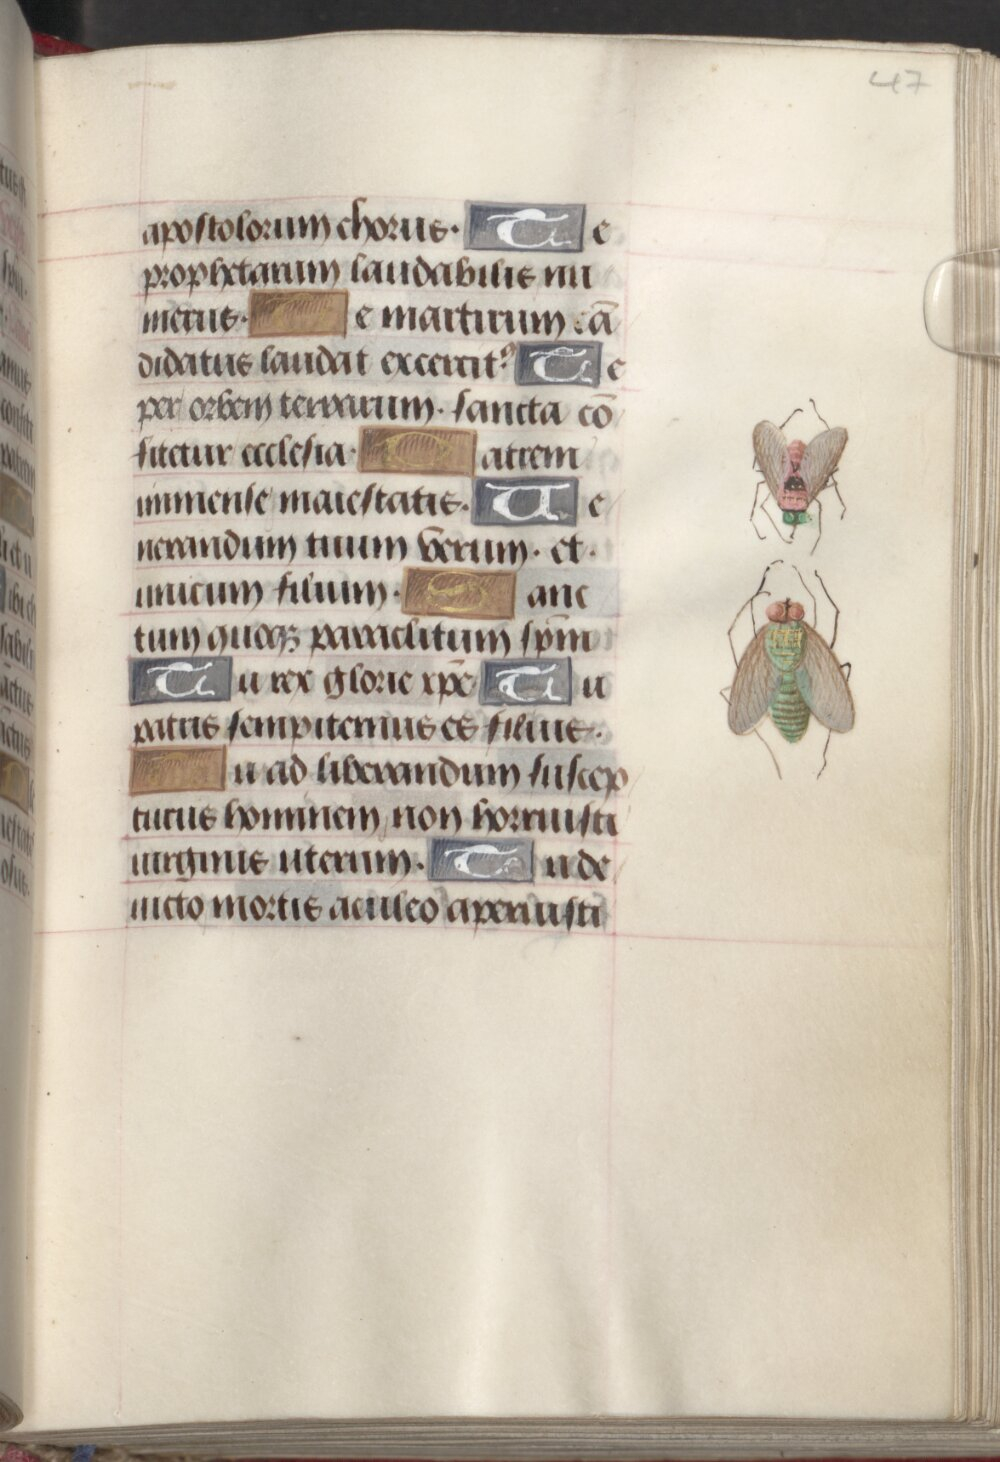 47
apostolorum chorus. Te
prophetarum laudabilis nu
merus. Te martirum cā
didatus laudat excercit⁹ Te
per orbem terrarum. sancta cō
fitetur ecclesia. Patrem
immense maiestatis. Ue
nerandum tuum verum. et.
unicum filium. Sanc
tum quoqꝫ paraclitum sp̄m
Tu rex glorie xp̄e Tu
patris sempiternus es filius.
Tu ad liberandum suscep
turus hominem non horruisti
uirginis uterum. Tu de
uicto mortis aculeo aperuisti